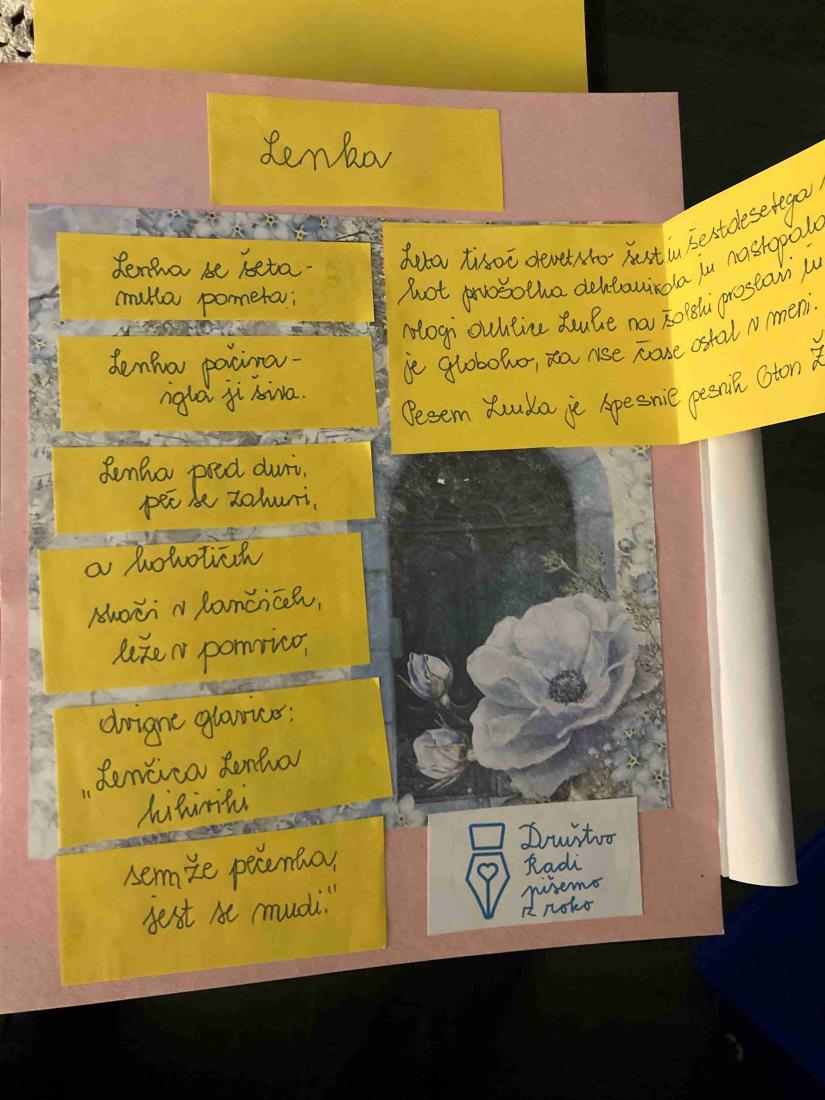 Lenka
Lenka se šeta -
metla pometa;
Lenka počiva -
igla ji šiva.
Lenka pred duri,
peč se zakuri,
a kokotiček
skoči v lončiček,
leže v pomvico,
dvigne glavico:
"Lenčica Lenka
kikiriki
sem že pečenka,
jest se mudi."
Leta tisoč devetsto šest in šestdesetega
kot prvošolka deklamirala in nastopala
vlogi deklice Lenke na šolski proslavi in
je globoko, za vse čase ostal v meni.
Pesem Lenka je spesnil pesnik Oton
Društvo
Radi
pišemo
z roko